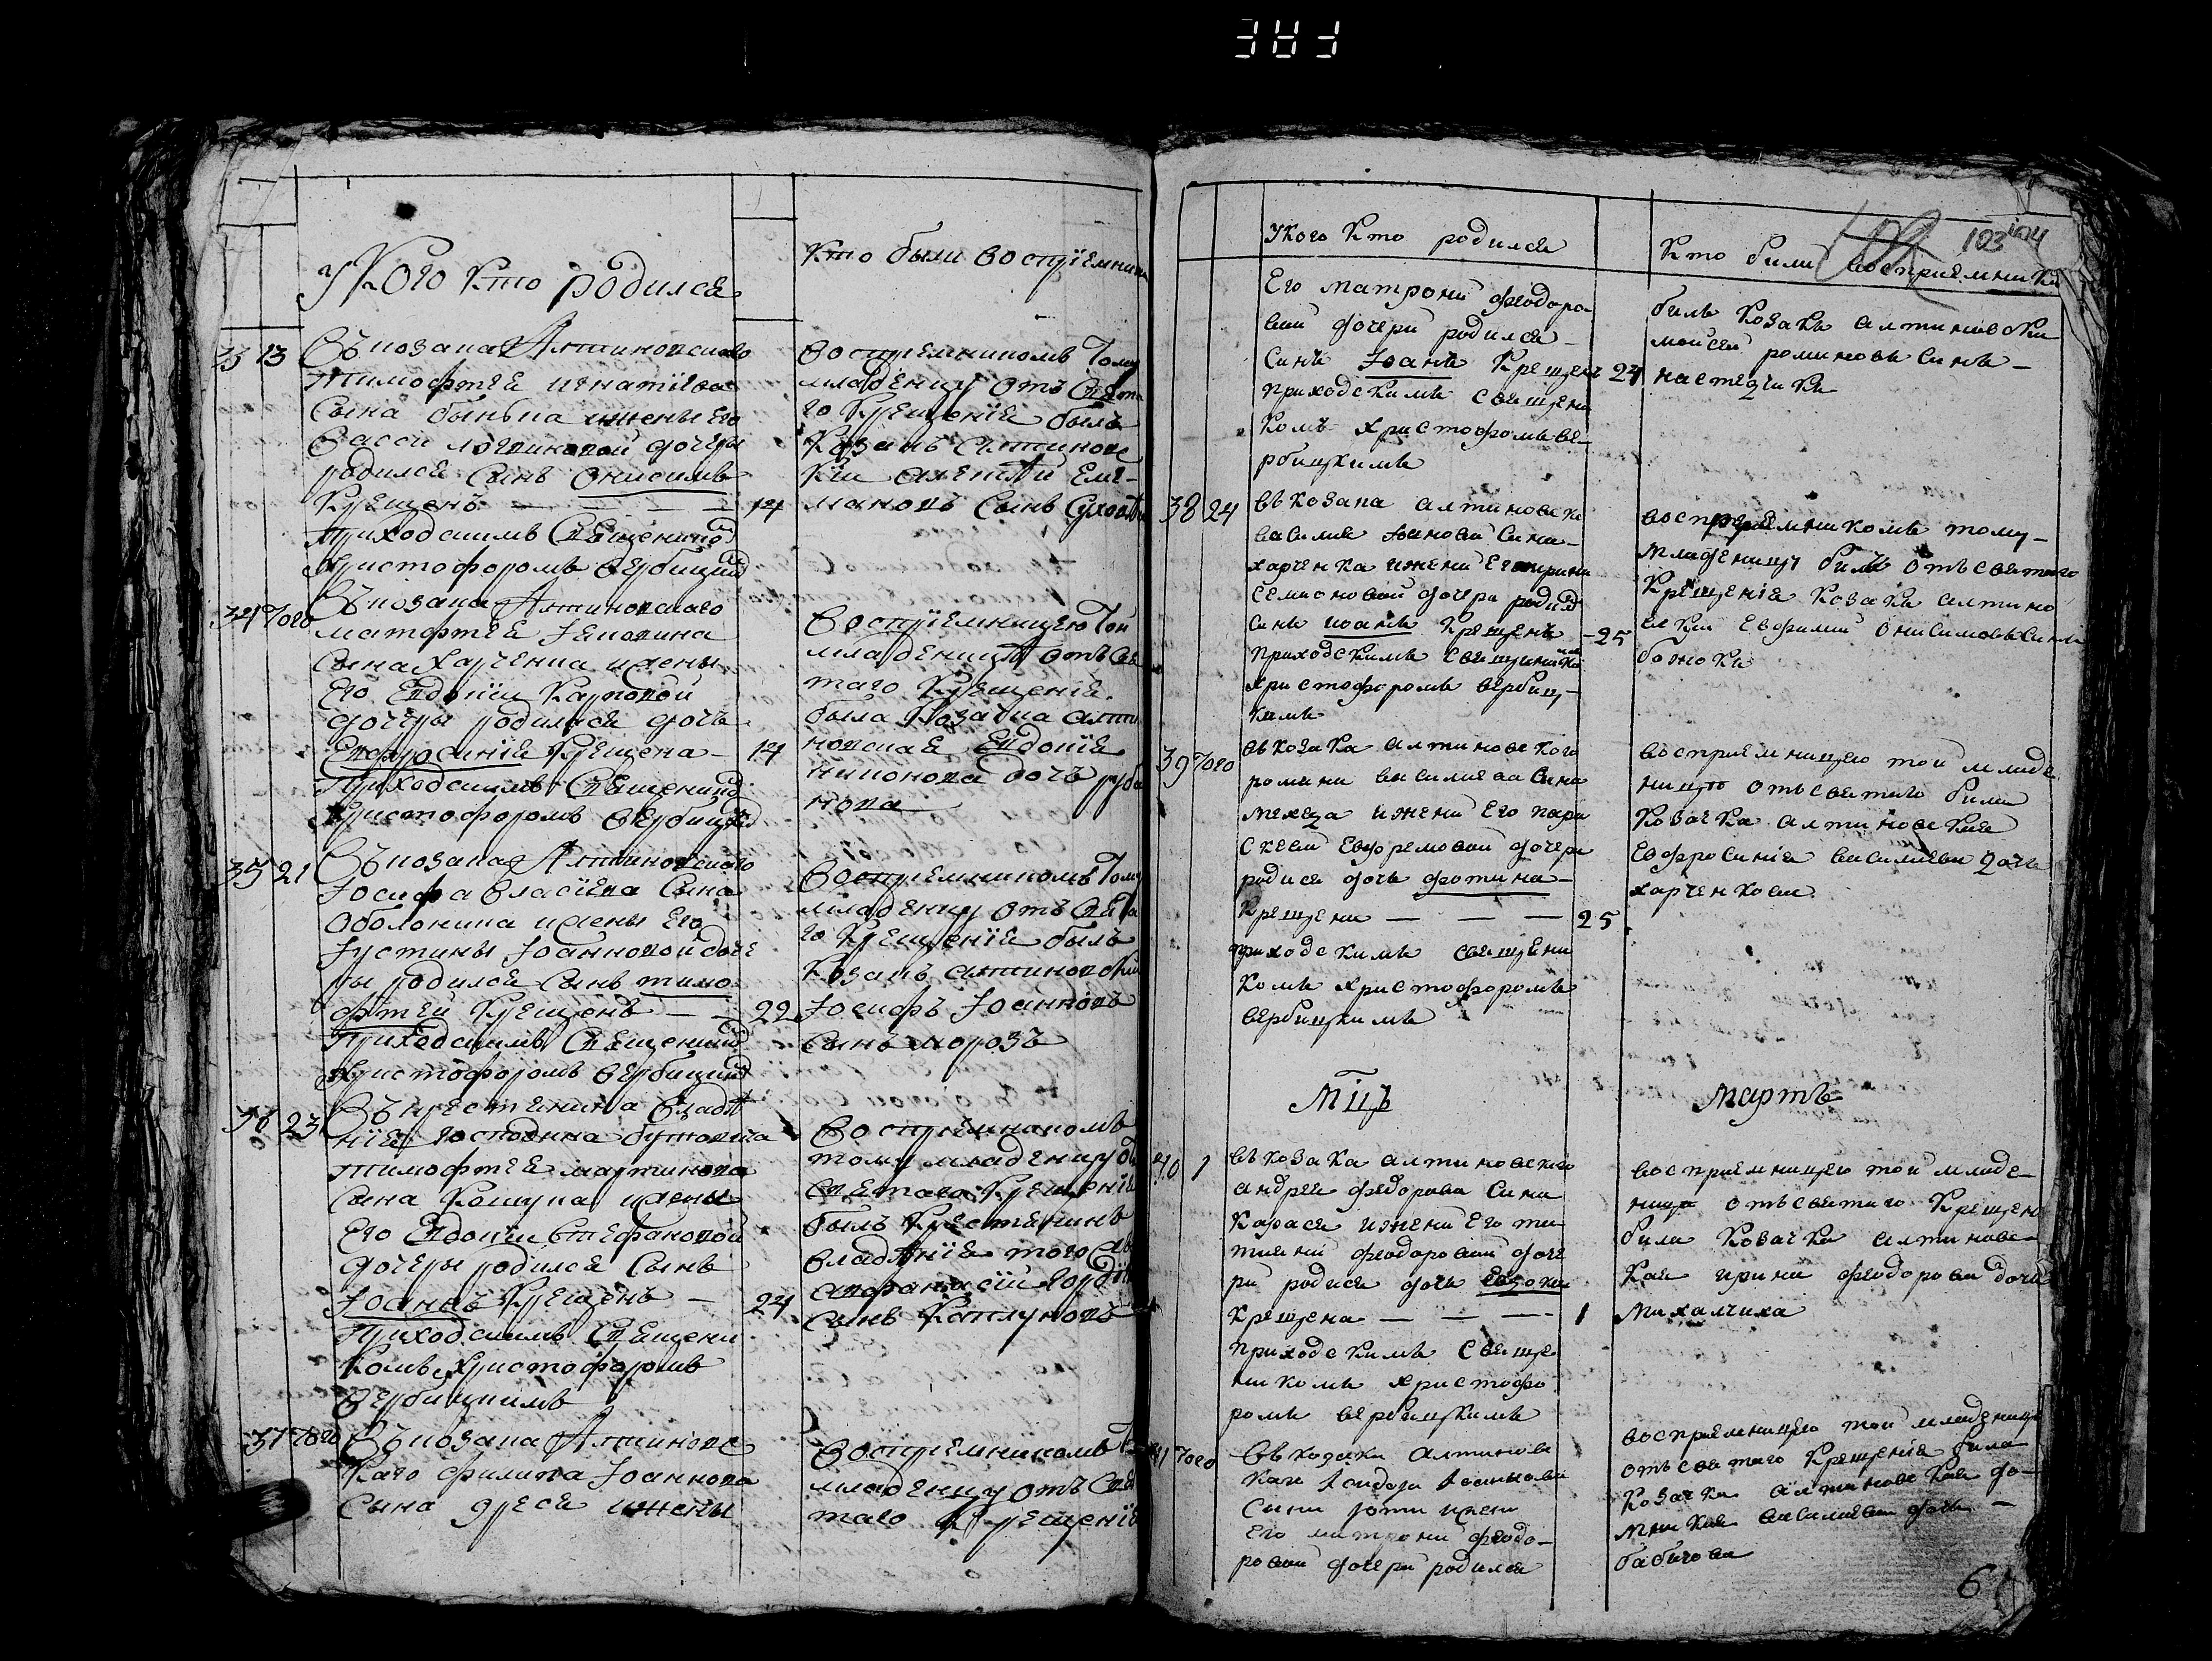 У кого кто родился
кто были восприемники
33 13
Въ козака Алтиновскаго
тимофѣя игнатіева
сына бынька жены его
васси логвиновой дочеры
родился сынъ Онисимъ
Крещенъ — — — 14
приходскимъ священикомъ
христофоромъ вербицкимъ
восприемникомъ тому
младенцу отъ свята
го крещенія былъ
козакъ алтиновс
кіи алеѯѣй еме-
лановъ сынъ
34 того
Въ козака Алтиновскаго
матфѣя
сына харченка жены
его Евдокіи карповой
дочеры родилася дочь
Евфросинія крещена — 14
приходскимъ священикомъ
христофоромъ вербицкимъ
восприемницею той
младеницѣ отъ свя
таго крещенія
была козачка алти
новская Евдокія
никонова дочъ руба
нова
35 21
Въ козака Алтиновскаго
Іосифа власіева сына
оболонина жены его
Іустины Іоанновой доче
ры родился сынъ тимо
фѣй крещенъ — — 22
приходскимъ священикомъ
христофоромъ вербицкимъ
восприемникомъ тому
младенцу отъ свята
го крещенія былъ
козакъ алтиновски
Іосифъ Іоанновъ
сынъ морозъ
36 23
Въ крестянина владѣ
нія господина
тимофѣя мартинова
сына кошупа жены
его Евдокіи стефановой
дочеры родился сынъ
Іоаннъ крещенъ — 24
приходскимъ священи
комъ христофоромъ
вербицкимъ
восприемникомъ
тому младенцу
святаго крещенія
былъ крестянинъ
владѣнія того
афанасіи
сынъ каплуновъ
37 того
Въ козака Алтиновс
каго филипа Іоаннова
сына жены
восприемникомъ
младенцу отъ свя
таго крещенія
У кого кто родился
кто били восприемники
103 104
Его матрони феодоро
вой дочери родился
синъ Іоанъ крещенъ 24
приходскимъ священи
комъ христофоромъ ве-
рбицкимъ
билъ козакъ алтиновски
моисей романовъ синъ —
38 24
въ козака алтиновско
василия Іоанова сина
харченка жени его ирини
семионовой дочери родил
синъ иоанъ крещенъ — 25
приходскимъ священико
христофоромъ вербиц-
кимъ
восприемникомъ тому
младеницу билъ отъ святаго
крещенія козакъ алтино
вски Евфимий онисимовъ синъ
божокъ
39 того
въ козака алтиновского
романа василиева сина
жени его пара
скеви Ефремовой дочери
родися дочь фотина —
крещена — — — 25
приходскимъ священи
комъ христофоромъ
вербицкимъ
восприемницею той младе
ници отъ святаго била
козачка алтиновская
Евфросинія василиева дочъ
харченкова
Мцъ Мартъ
40 1
въ козака алтиновского
андрея федорова сина
карася жени его та
тияни феодоровой доче
ри родися дочь Евдокия
крещена — — — 1
приходскимъ свяще
никомъ христофо
ромъ вербицкимъ
восприемницею той младе-
ници отъ святаго крещен
била козачка алтиновс-
кая ирина феодорова дочъ
михалчиха
41 того
въ козака алтиновс
каго
сина жени
его матрони феодо-
ровой дочери родился
восприемницею той младеници
отъ святаго крещенія била
козачка алтиновская до-
мникия василиева дочъ —
бабичова
6